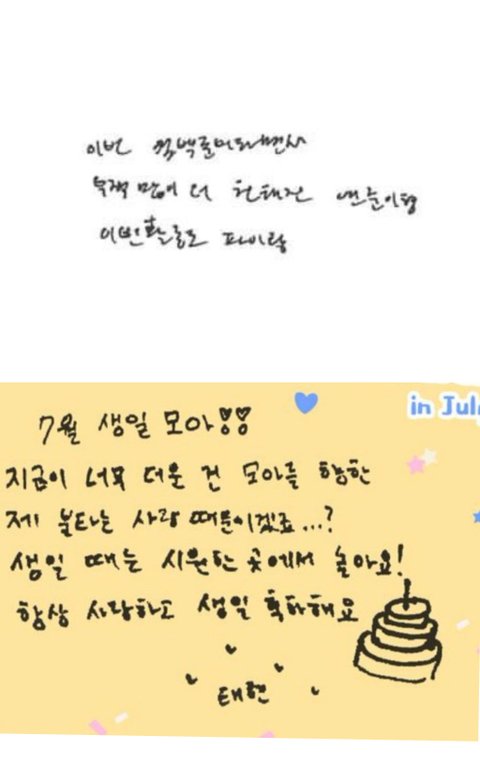 이번 컴백준비하면서
부쩍 많이 더 친해진 연준이형
이번활동도 파이팅
in Jul
7월 생일 모아
지금이 너무 더운 건 모아를 향한
제 불타는 사랑 때문이겠죠...?
생일 때는 시원한 곳에서 놀아요!
항상 사랑하고 생일 축하해요
태현